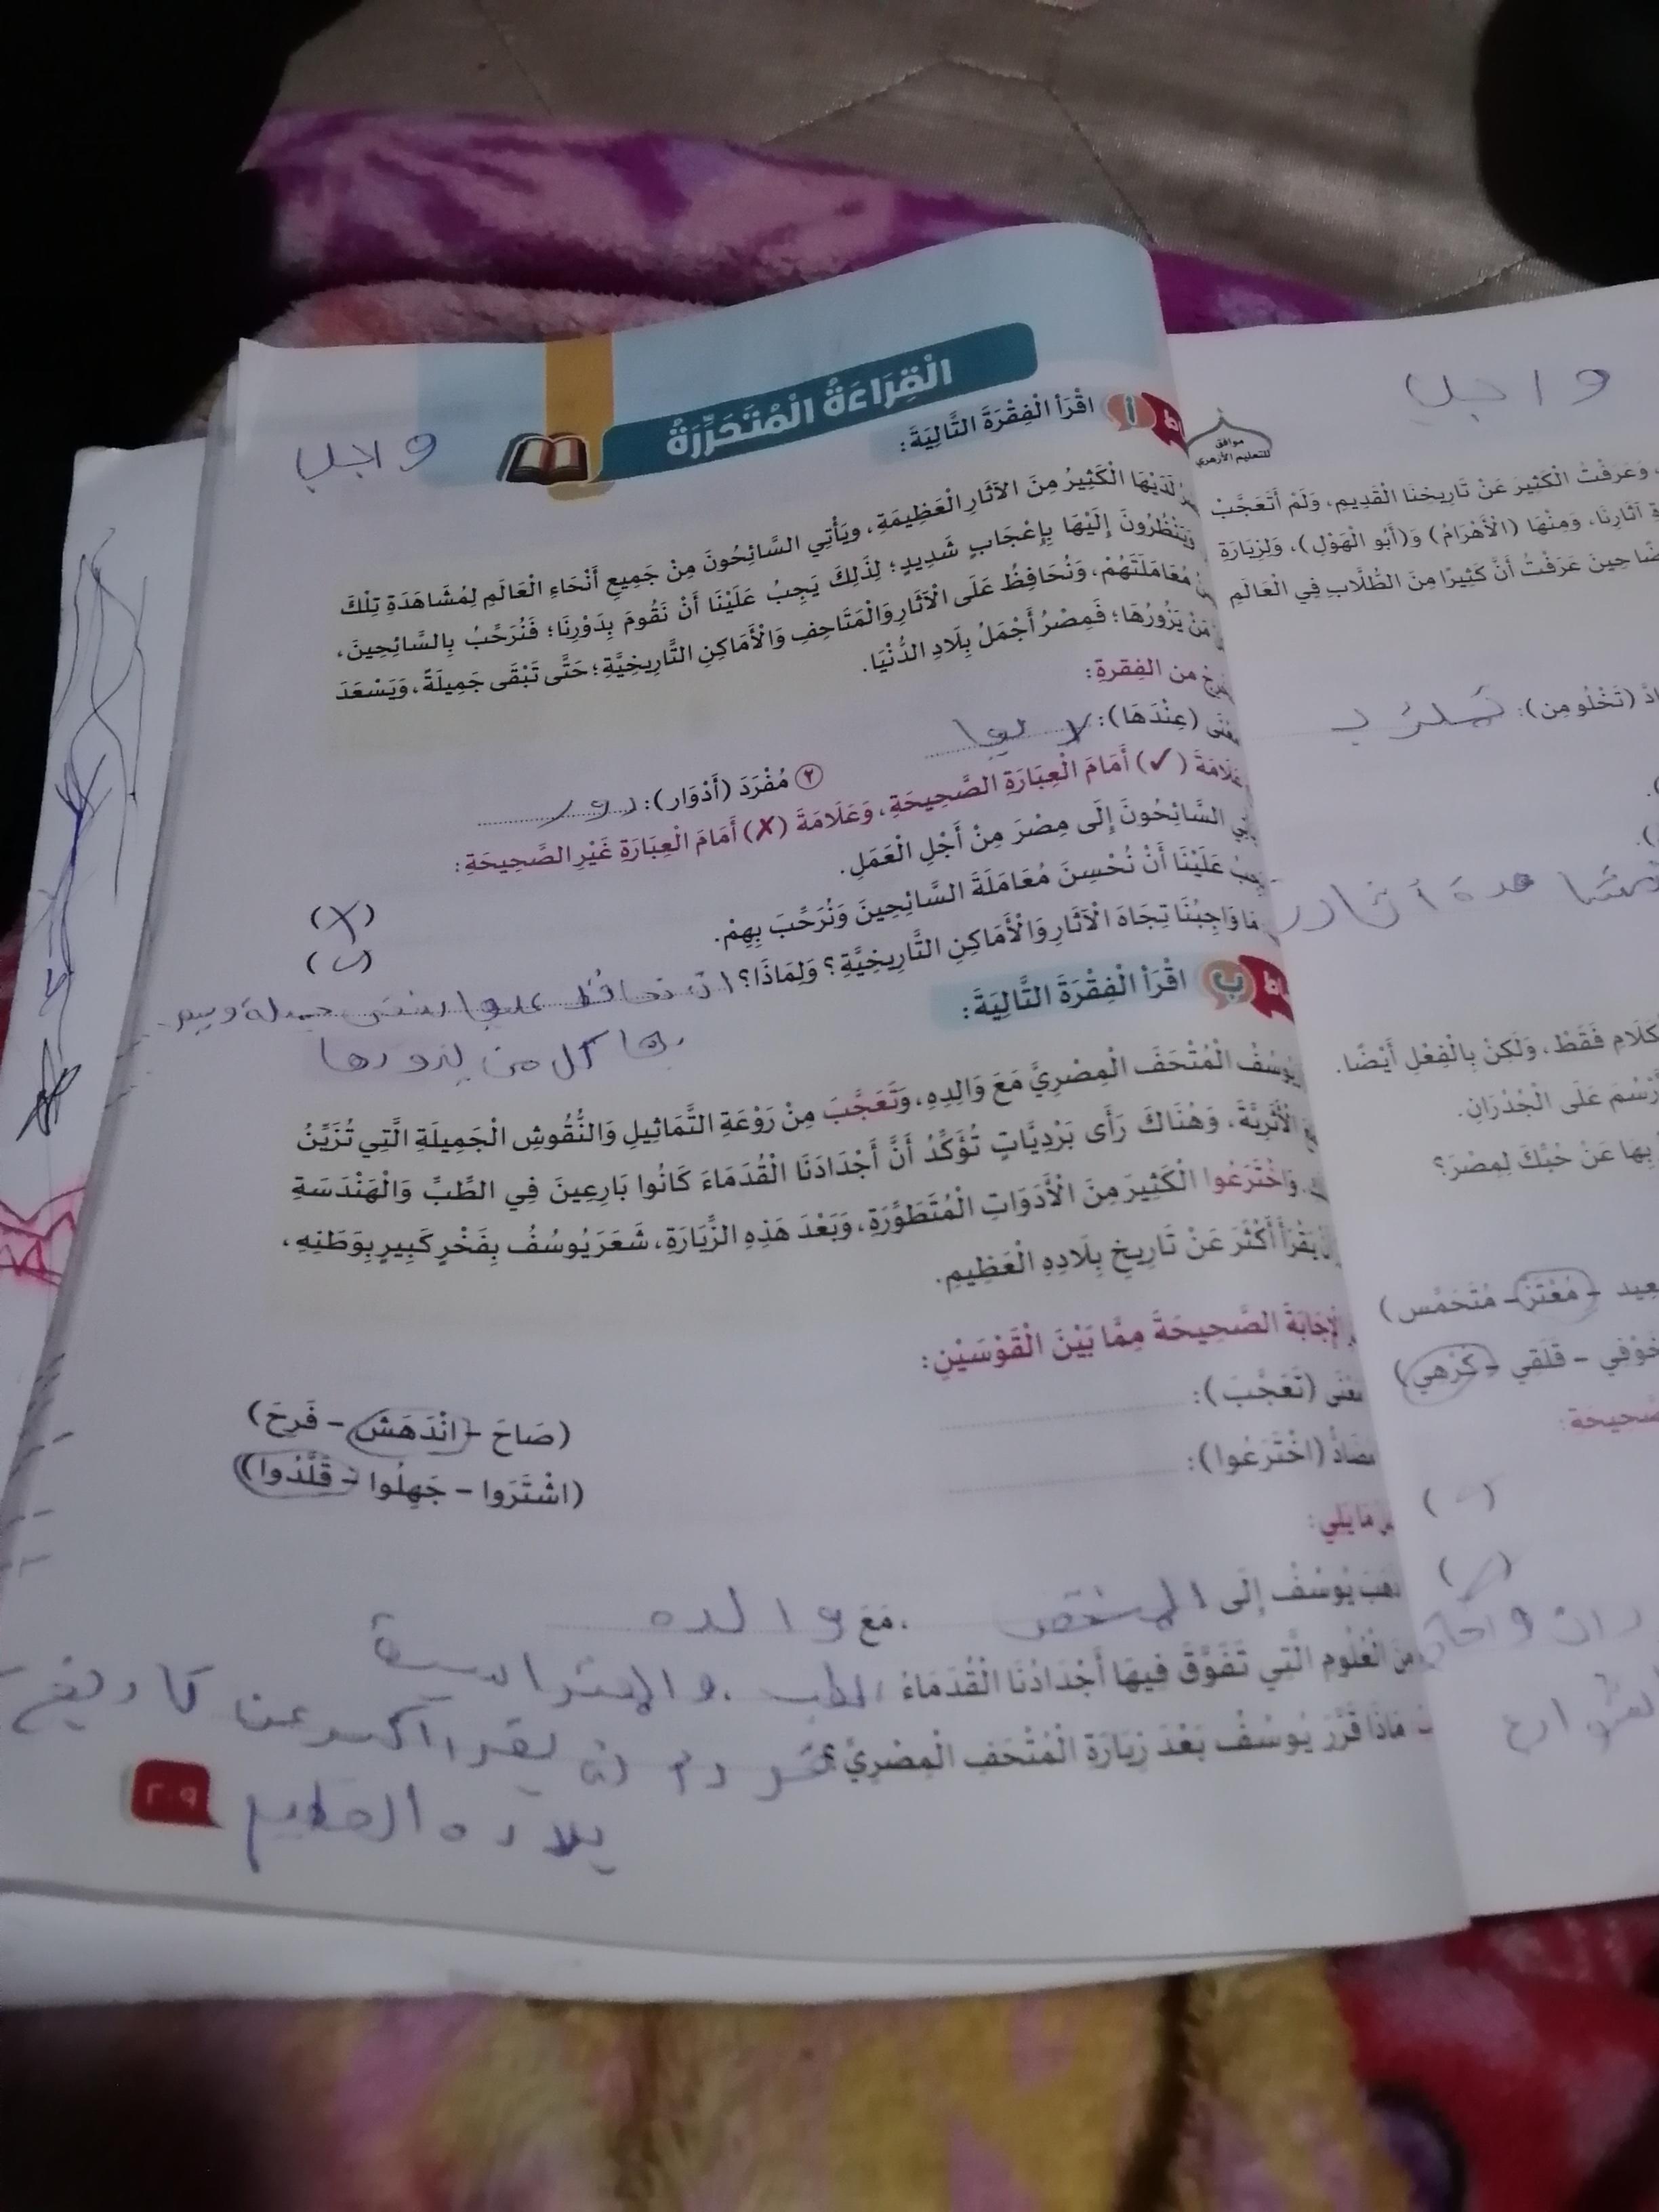 واجب
الْقِرَاءَةُ الْمُتَحَرِّرَةُ
أ اقْرَأِ الْفِقْرَةَ التَّالِيَةَ:
لَدَيْهَا الْكَثِيرُ مِنَ الْآثَارِ الْعَظِيمَةِ، وَيَأْتِي السَّائِحُونَ مِنْ جَمِيعِ أَنْحَاءِ الْعَالَمِ لِمُشَاهَدَةِ تِلْكَ
وَيَنْظُرُونَ إِلَيْهَا بِإِعْجَابٍ شَدِيدٍ؛ لِذَلِكَ يَجِبُ عَلَيْنَا أَنْ نَقُومَ بِدَوْرِنَا؛ فَنُرَحِّبُ بِالسَّائِحِينَ،
مُعَامَلَتَهُمْ، وَنُحَافِظُ عَلَى الْآثَارِ وَالْمَتَاحِفِ وَالْأَمَاكِنِ التَّارِيخِيَّةِ؛ حَتَّى تَبْقَى جَمِيلَةً، وَيَسْعَدَ
مَنْ يَزُورُهَا؛ فَمِصْرُ أَجْمَلُ بِلَادِ الدُّنْيَا.
من الفِقرةِ:
مَعْنَى (عِنْدَهَا):
٢ مُفْرَدَ (أَدْوَار): دور
عَلَامَةَ (✓) أَمَامَ الْعِبَارَةِ الصَّحِيحَةِ، وَعَلَامَةَ (✗) أَمَامَ الْعِبَارَةِ غَيْرِ الصَّحِيحَةِ:
السَّائِحُونَ إِلَى مِصْرَ مِنْ أَجْلِ الْعَمَلِ. (✗)
عَلَيْنَا أَنْ نُحْسِنَ مُعَامَلَةَ السَّائِحِينَ وَنُرَحِّبَ بِهِمْ. (✓)
مَا وَاجِبُنَا تِجَاهَ الْآثَارِ وَالْأَمَاكِنِ التَّارِيخِيَّةِ؟ وَلِمَاذَا؟ ان نحافظ عليها جميلة
بها كل من يزورها
ب اقْرَأِ الْفِقْرَةَ التَّالِيَةَ:
يُوسُفُ الْمُتْحَفَ الْمِصْرِيَّ مَعَ وَالِدِهِ، وَتَعَجَّبَ مِنْ رَوْعَةِ التَّمَاثِيلِ وَالنُّقُوشِ الْجَمِيلَةِ الَّتِي تُزَيِّنُ
الْأَثَرِيَّةَ، وَهُنَاكَ رَأَى بَرْدِيَّاتٍ تُؤَكِّدُ أَنَّ أَجْدَادَنَا الْقُدَمَاءَ كَانُوا بَارِعِينَ فِي الطِّبِّ وَالْهَنْدَسَةِ
وَاخْتَرَعُوا الْكَثِيرَ مِنَ الْأَدَوَاتِ الْمُتَطَوِّرَةِ، وَبَعْدَ هَذِهِ الزِّيَارَةِ، شَعَرَ يُوسُفُ بِفَخْرٍ كَبِيرٍ بِوَطَنِهِ،
يَقْرَأَ أَكْثَرَ عَنْ تَارِيخِ بِلَادِهِ الْعَظِيمِ.
الْإِجَابَةَ الصَّحِيحَةَ مِمَّا بَيْنَ الْقَوْسَيْنِ:
مَعْنَى (تَعَجَّبَ): (صَاحَ - انْدَهَشَ - فَرِحَ)
مُضَادُّ (اخْتَرَعُوا): (اشْتَرَوا - جَهِلُوا - قَلَّدُوا)
مَا يَلِي:
ذَهَبَ يُوسُفُ إِلَى ، مَعَ والده
مِنَ الْعُلُومِ الَّتِي تَفَوَّقَ فِيهَا أَجْدَادُنَا الْقُدَمَاءُ الطب
مَاذَا قَرَّرَ يُوسُفُ بَعْدَ زِيَارَةِ الْمُتْحَفِ الْمِصْرِيِّ؟ ان يقرا اكثر عن تاريخ
بلاده العظيم
٢٠٩
واجب
موافق
للتعليم الأزهري
وَعَرَفْتُ الْكَثِيرَ عَنْ تَارِيخِنَا الْقَدِيمِ، وَلَمْ أَتَعَجَّبْ
آثَارِنَا، وَمِنْهَا (الْأَهْرَامُ) وَ(أَبُو الْهَوْلِ)، وَلِزِيَارَةِ
حِينَ عَرَفْتُ أَنَّ كَثِيرًا مِنَ الطُّلَّابِ فِي الْعَالَمِ
(تَخْلُو مِن):
فَقَطْ، وَلَكِنْ بِالْفِعْلِ أَيْضًا.
عَلَى الْجُدْرَانِ.
بِهَا عَنْ حُبِّكَ لِمِصْرَ؟
- مُعْتَزّ - مُتَحَمِّس)
خَوْفِي - قَلَقِي - كُرْهِي)